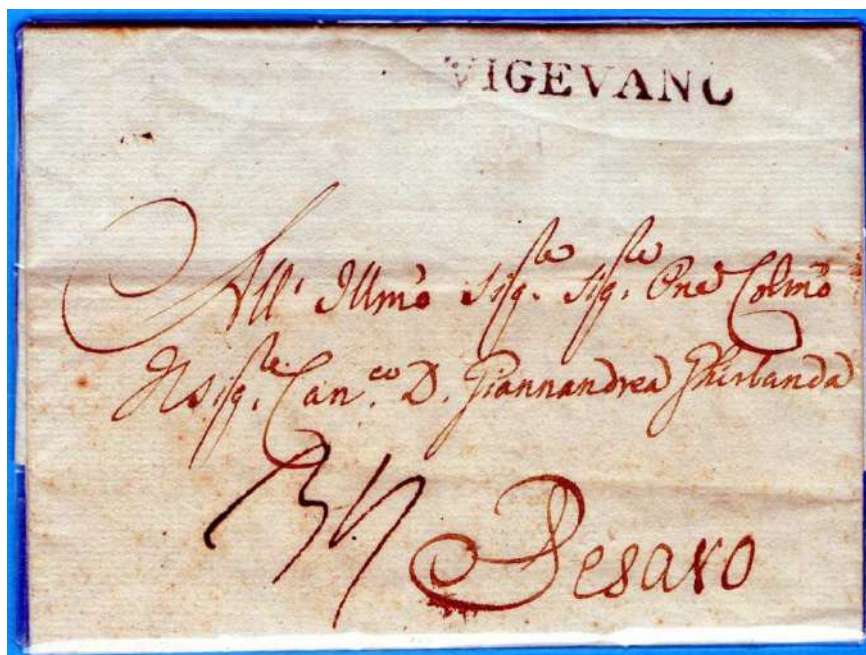 VIGEVANO
All' Illmo Sigre Sigre Pne Colmo
Il Sigre Canco D. Giannandrea Ghirlanda
Pesaro